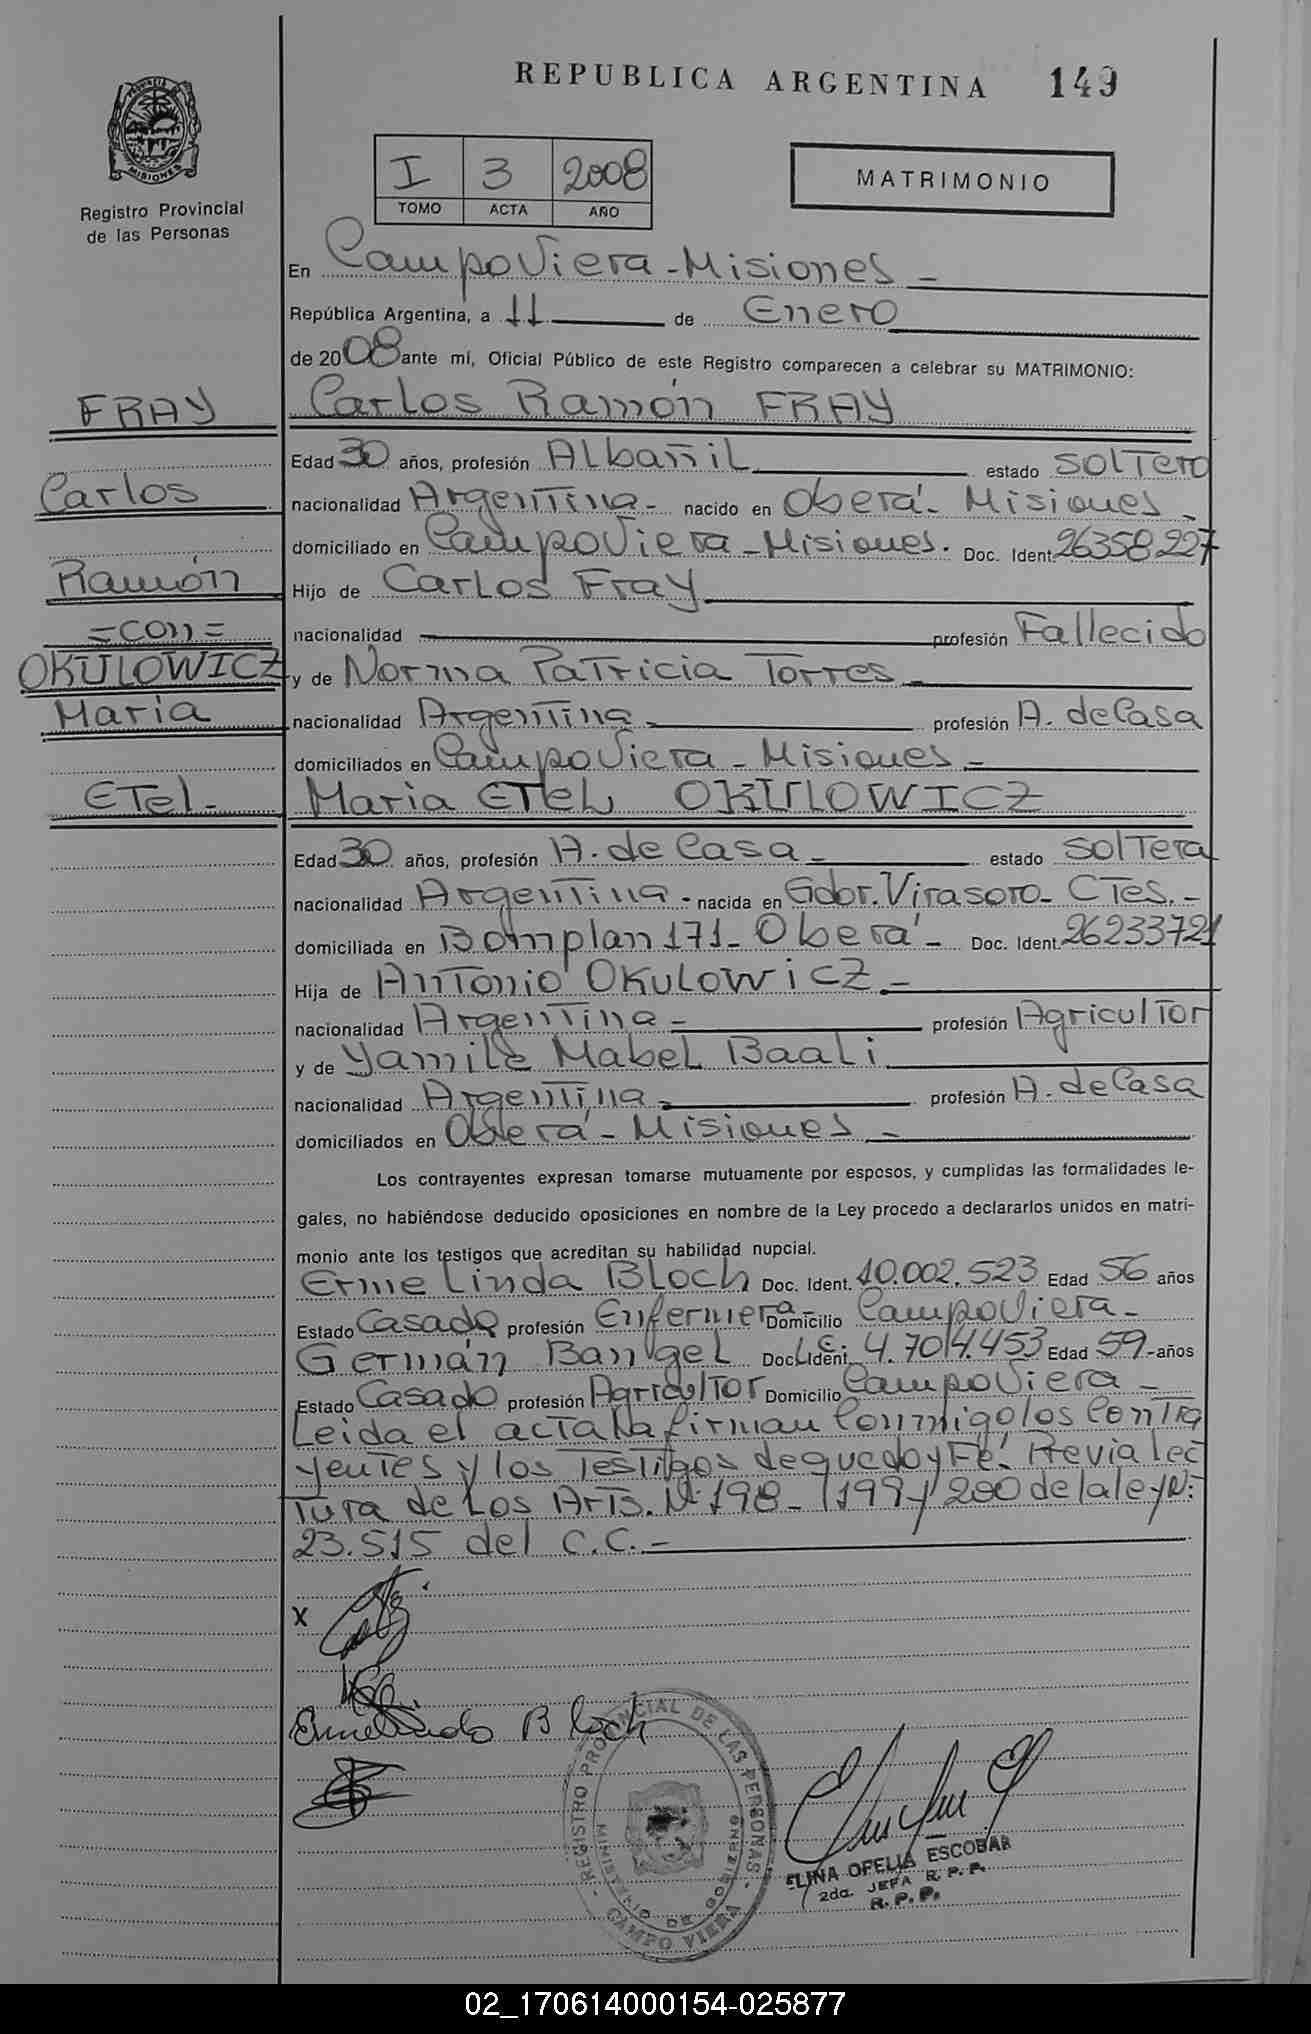 REPUBLICA ARGENTINA 149
PROVINCIA DE MISIONES
Registro Provincial
de las Personas
I 3 2008
TOMO ACTA AÑO
MATRIMONIO
En Campo Viera - Misiones -
República Argentina, a 11 de Enero
de 2008 ante mí, Oficial Público de este Registro comparecen a celebrar su MATRIMONIO:
FRAY
Carlos
Ramón
=con=
OKULOWICZ
Maria
ETel-
Carlos Ramón FRAY
Edad 30 años, profesión Albañil estado solTero
nacionalidad ArgenTina- nacido en Oberá- Misiones-
domiciliado en Campo Viera - Misiones. Doc. Ident. 26358227
Hijo de Carlos Fray
nacionalidad profesión Fallecido
y de Norma PaTricia Torres-
nacionalidad ArgenTina- profesión A. de Casa
domiciliados en Campo Viera - Misiones-
Maria ETEL OKULOWICZ
Edad 30 años, profesión A. de Casa- estado solTera
nacionalidad ArgenTina- nacida en Gdor. Virasoro- CTes.-
domiciliada en Bomplan 171- Oberá- Doc. Ident. 26233721
Hija de AnTonio OKulowicz-
nacionalidad ArgenTina- profesión AgriculTor
y de Yamile Mabel Baali
nacionalidad ArgenTina- profesión A. de Casa
domiciliados en Oberá- Misiones-
Los contrayentes expresan tomarse mutuamente por esposos, y cumplidas las formalidades le-
gales, no habiéndose deducido oposiciones en nombre de la Ley procedo a declararlos unidos en matri-
monio ante los testigos que acreditan su habilidad nupcial.
Erme Linda Bloch Doc. Ident. 10.002.523 Edad 56 años
Estado Casada profesión Enfermera- Domicilio Campo Viera-
Germán Bangel Doc. Ident. L.E: 4.704.453 Edad 59-años
Estado Casado profesión AgriculTor Domicilio Campo Viera-
Leida el acTa la firman Conmigo los ConTra
yenTes y los TesTigos de que doy Fé. Previa lec
Tura de Los ArTs. Nº 198- 199 y 200 de la ley Nº:
23.515 del C.C.-
X
Ermelindo Bloch
REGISTRO PROVINCIAL DE LAS PERSONAS
MINISTERIO DE GOBIERNO
CAMPO VIERA
ELINA OFELIA ESCOBAR
2da. JEFA R. P. P.
R. P. P.
02_170614000154-025877